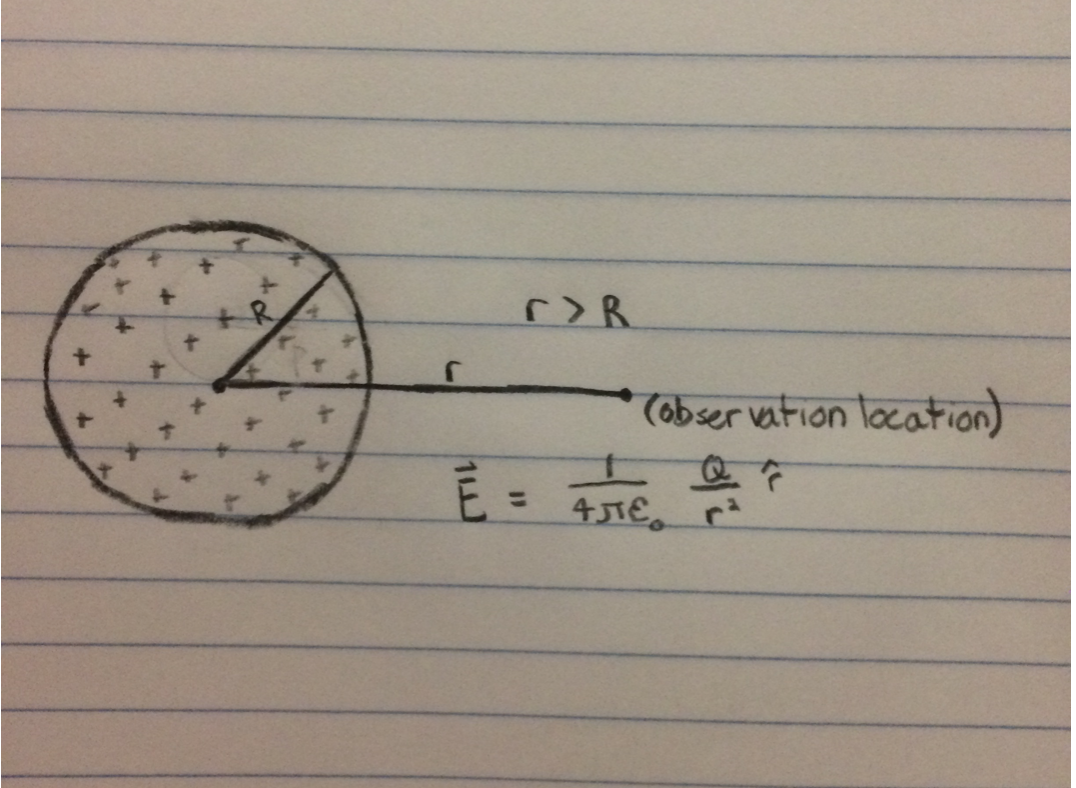 R
r > R
r
(observation location)
E⃗ = 1/4πε₀ Q/r² r̂